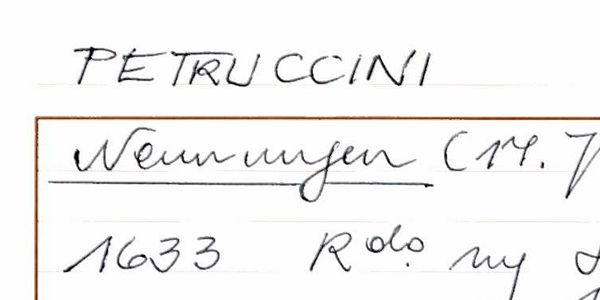 PETRUCCINI
Nennungen (17. J
1633 Rdo. ny